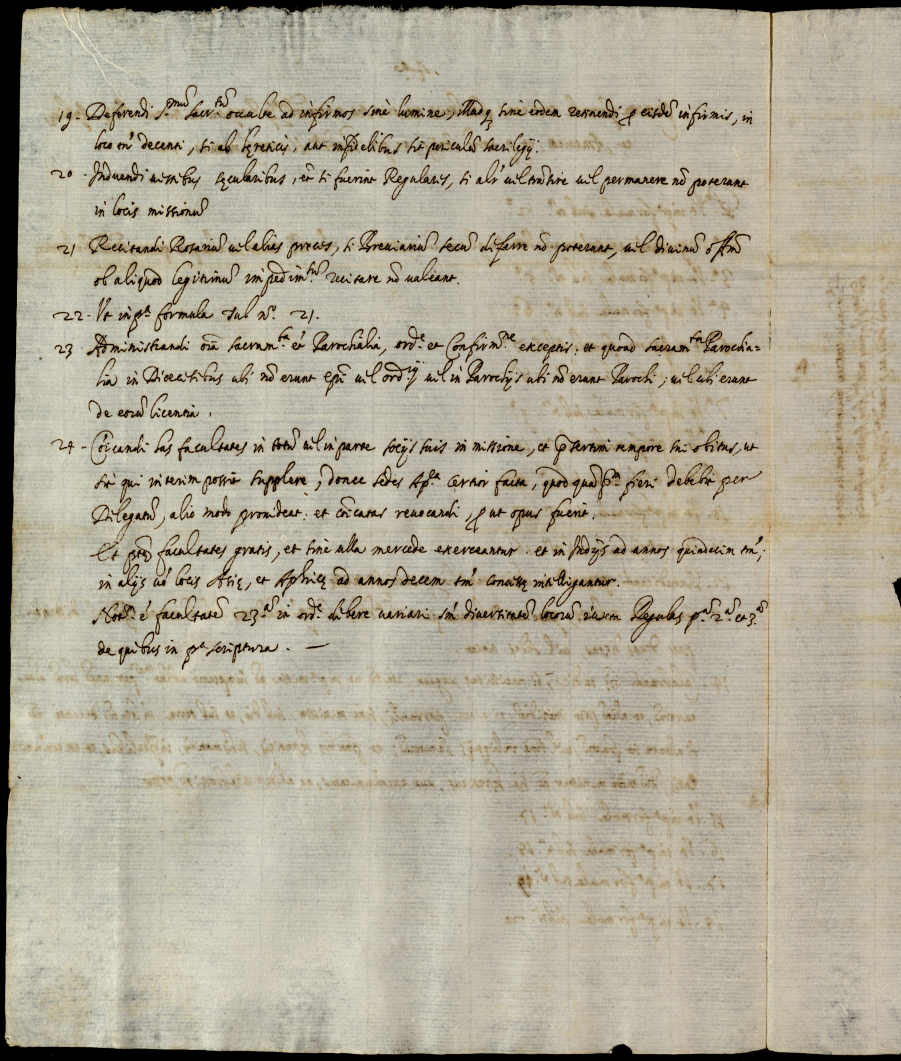 19 - Deferendi S.mũ Sacr.tũ occulte ad infirmos sine lumine, illudq sine eodem retinendi p eisdẽ infirmis, in
loco tñ decenti, si ab hęreticis, aut infidelibus sit periculũ sacrilegij.
20 - Induendi vestibus sęcularibus, et si fuerint Regulares, si alr̃ vel transire vel permanere nõ poterunt
in locis missionũ
21 Recitandi Rosariũ vel alias preces, si Breviariũ secũ differre nõ poterunt, vel divinũ offm̃
ob aliquod legitimũ impedim.tũ recitare nõ valeant.
22 - Ut in pr.a formula sub n.o 21.
23 Administrandi oĩa sacram.ta et Parochialia, ord.e et Confirm.ne exceptis. et quoad sacram.ta Parochia=
lia in Diocesibus ubi nõ erunt Epĩ vel ord.rij vel in Parochijs ubi nõ erunt Parochi, vel ubi erunt
de eorũ licentia.
24 - Cõicandi has facultates in totũ vel in parte socijs suis in missione, et p̃sertim tempore sui obitus, ut
sit qui interim possit supplere, donec sedes Ap.ca certior facta, quod quãp.m fieri debebit per
Delegatũ, alio modo provideat. et cõicatas revocandi, p ut opus fuerit.
Et p̃tę facultates gratis, et sine ulla mercede exerceantur. et in Indijs ad annos quindecim tm̃,
in alijs vẽ locis Asię, et Aphricę ad annos decem tm̃ concessę intelligantur.
Not.m ẽ facultatẽ 23.ã in ord.e debere variari sm̃ diversitatẽ locorũ iuxta Regulas p.ã 2.ã et 3.ã
de quibus in pr.a scriptura. —